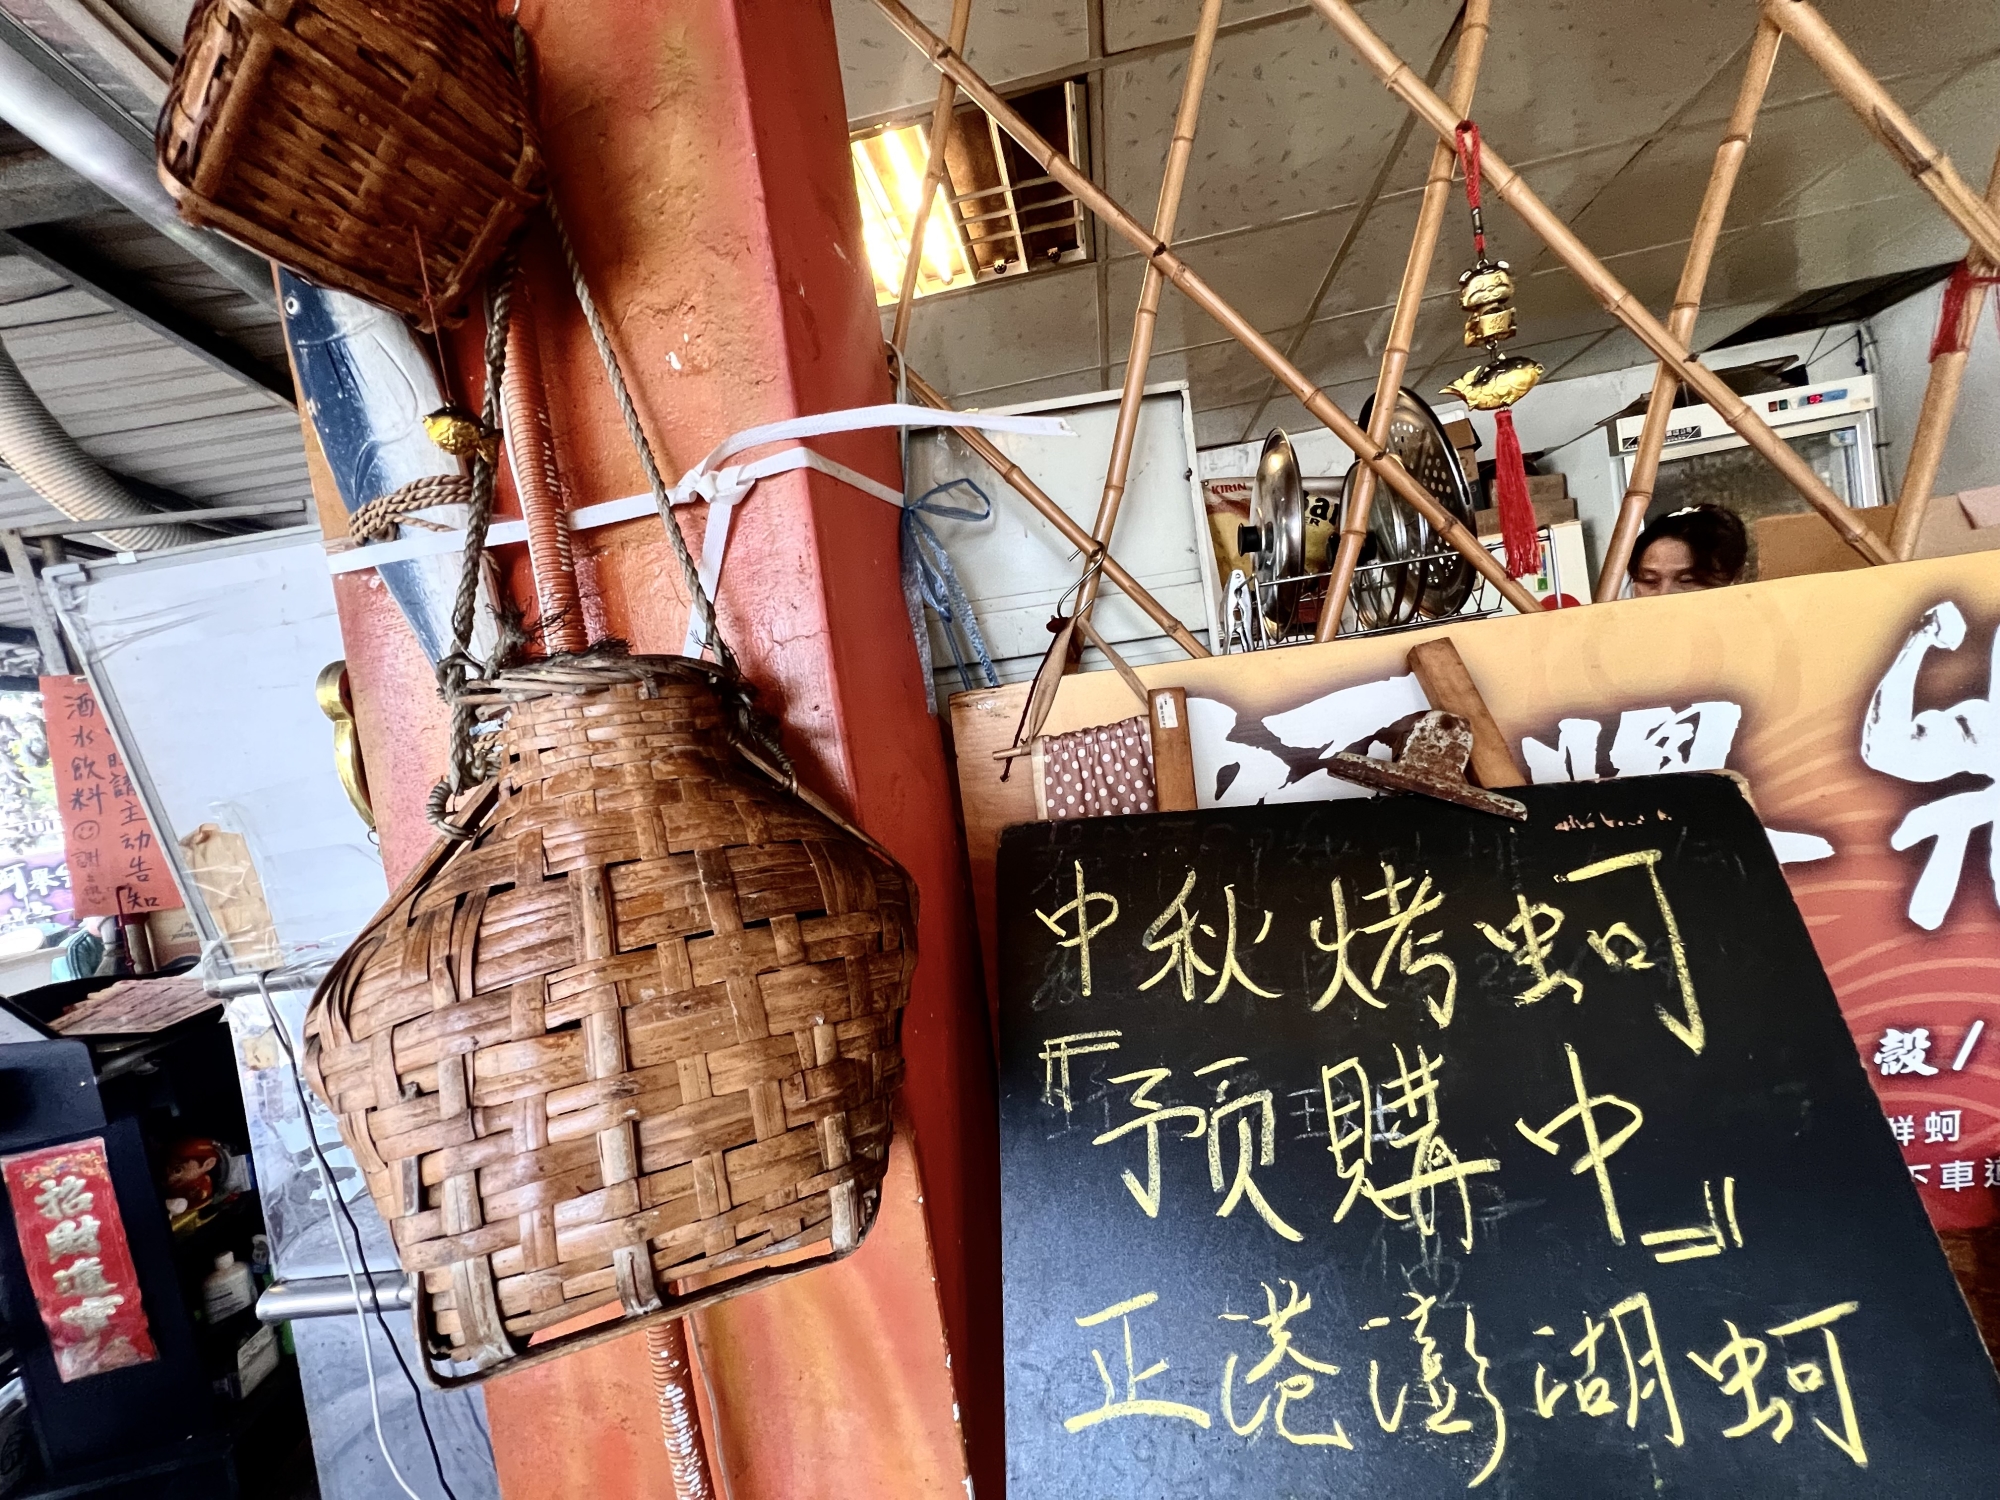 KIRIN
Bar
酒水飲料☺謝謝您
請主動告知
招財進寶
中秋烤蚵
『預購中』
正港澎湖蚵
殼/
鮮蚵
下車